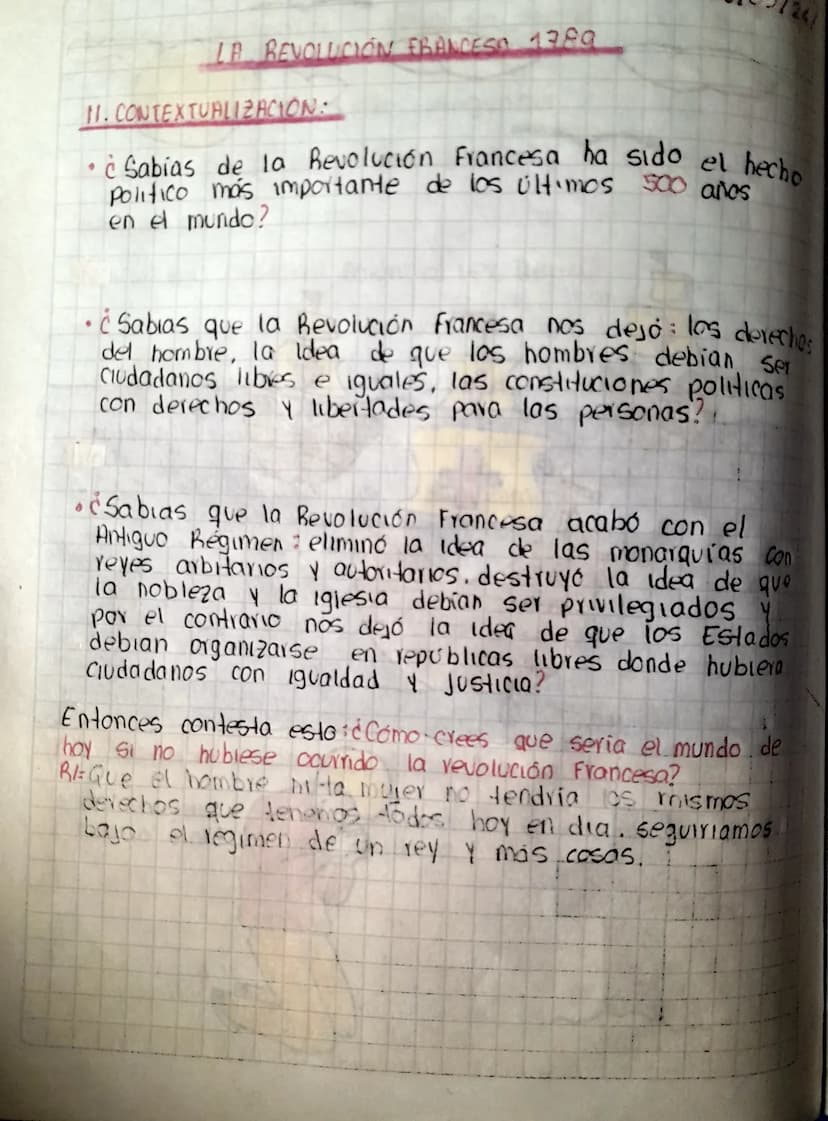 LA REVOLUCIÓN FRANCESA 1789
II. CONTEXTUALIZACIÓN:
• ¿Sabías de la Revolución Francesa ha sido el hecho
político más importante de los últimos 500 años
en el mundo?
• ¿Sabias que la Revolución Francesa nos dejó: los derechos
del hombre, la idea de que los hombres debían ser
ciudadanos libres e iguales, las constituciones políticas
con derechos y libertades para las personas?
• ¿Sabias que la Revolución Francesa acabó con el
Antiguo Régimen: eliminó la idea de las monarquías con
reyes arbitarios y autoritarios. destruyó la idea de que
la nobleza y la iglesia debían ser privilegiados y
por el contrario nos dejó la idea de que los Estados
debian organizarse en repúblicas libres donde hubiera
ciudadanos con igualdad y justicia?
Entonces contesta esto: ¿Cómo crees que seria el mundo de
hoy si no hubiese ocurrido la revolución Francesa?
R/= Que el hombre ni la mujer no tendría los mismos
derechos que tenemos todos hoy en dia. seguiriamos
bajo el régimen de un rey y más cosas.